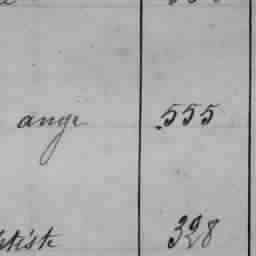 ange 555
tiste 328